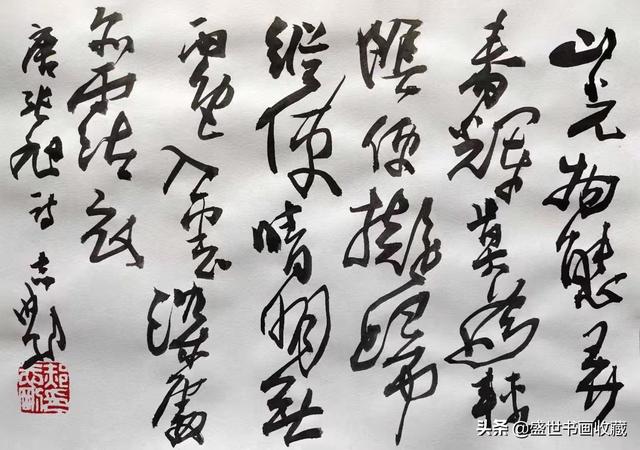 山光物態弄
春輝莫為輕
陰便擬歸
縱使晴明無
雨色入雲深處
亦霑衣
唐張旭詩 志
头条 @盛世书画收藏